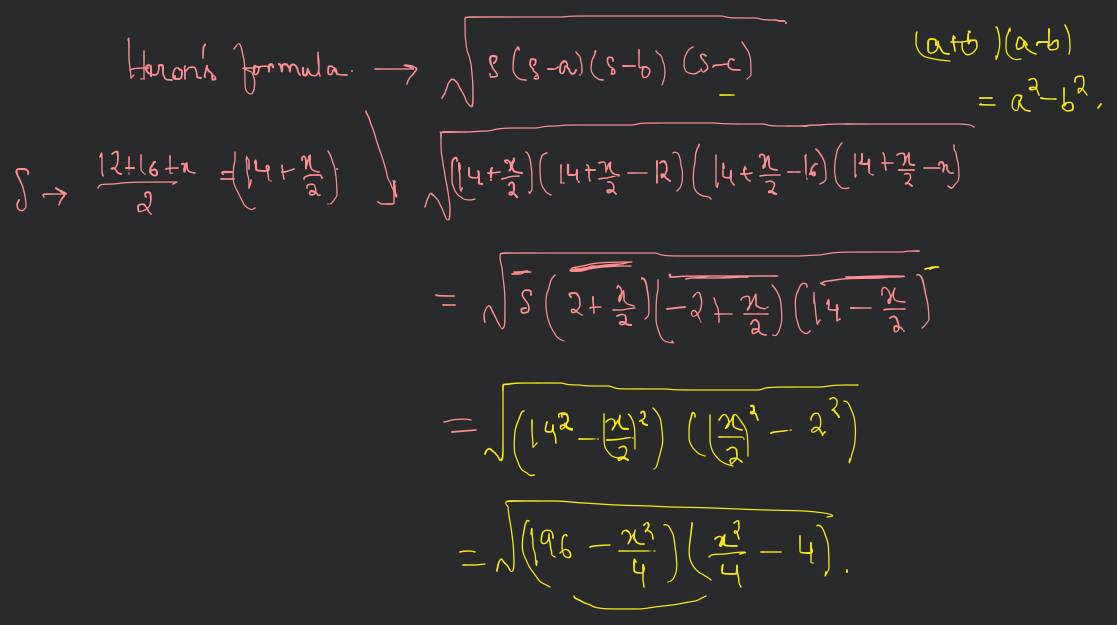 Heron's formula. → √(s(s-a)(s-b)(s-c))
(a+b)(a-b)
= a²-b².
S → (12+16+x)/2 = (14+x/2)
√((14+x/2)(14+x/2-12)(14+x/2-16)(14+x/2-x))
= √(s(2+x/2)(-2+x/2)(14-x/2))
= √((14²-(x/2)²)((x/2)²-2²))
= √((196-x²/4)(x²/4-4)).